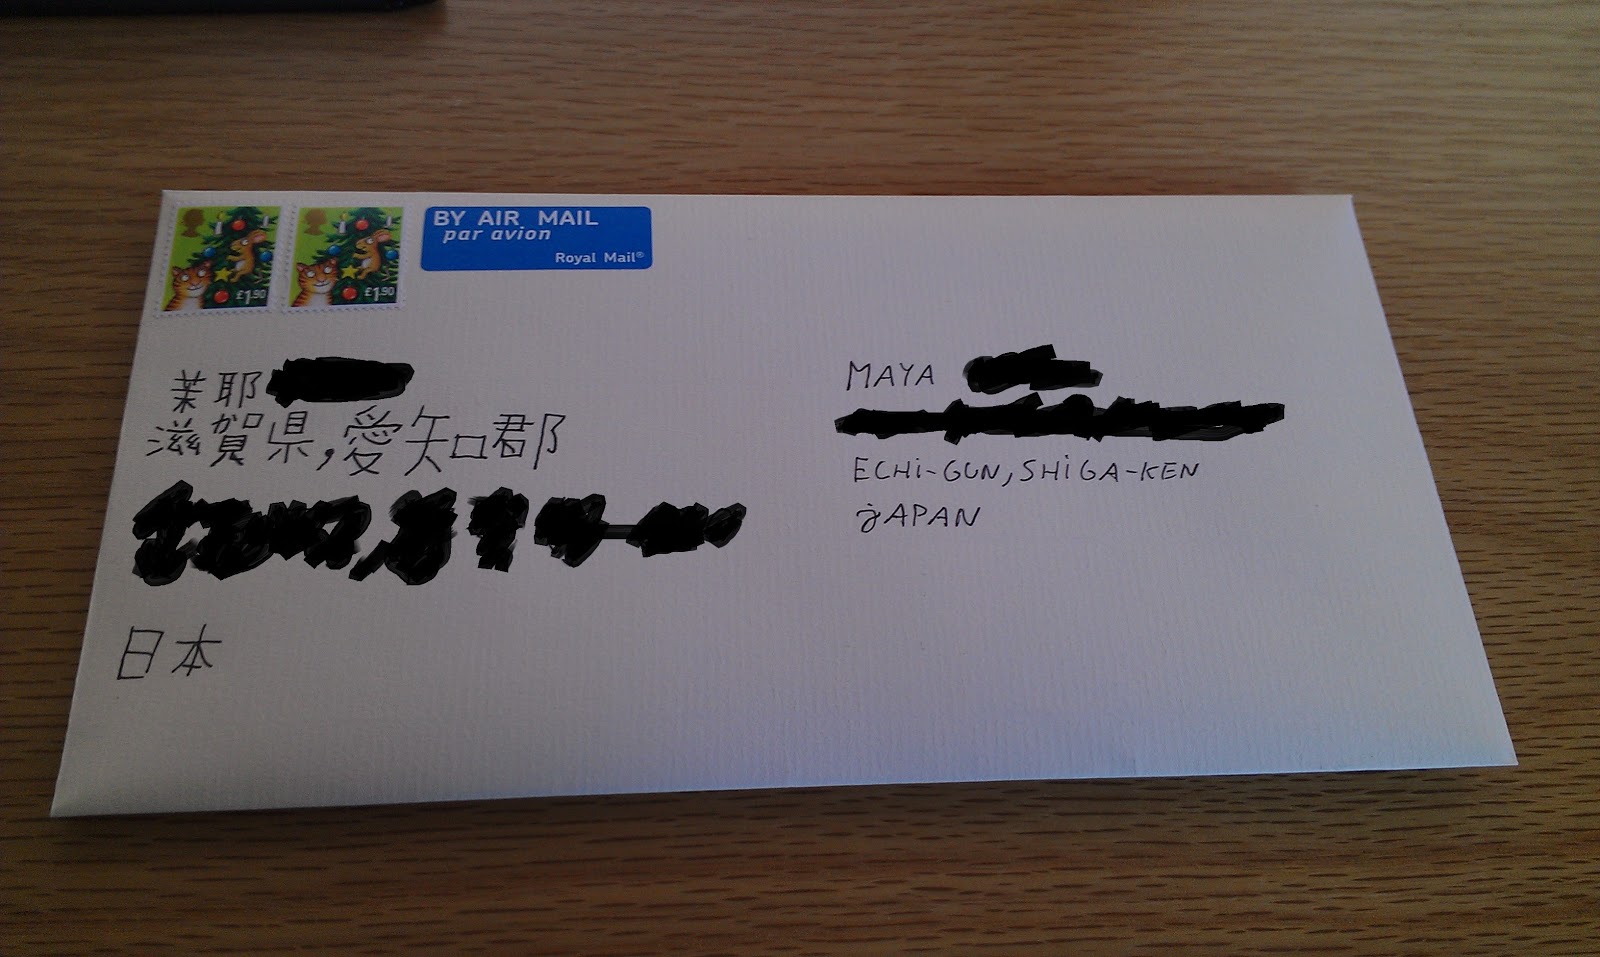 £1.90
£1.90
BY AIR MAIL
par avion
Royal Mail®
茉耶
滋賀県,愛知郡
日本
MAYA
ECHi-GUN, SHiGA-KEN
jAPAN